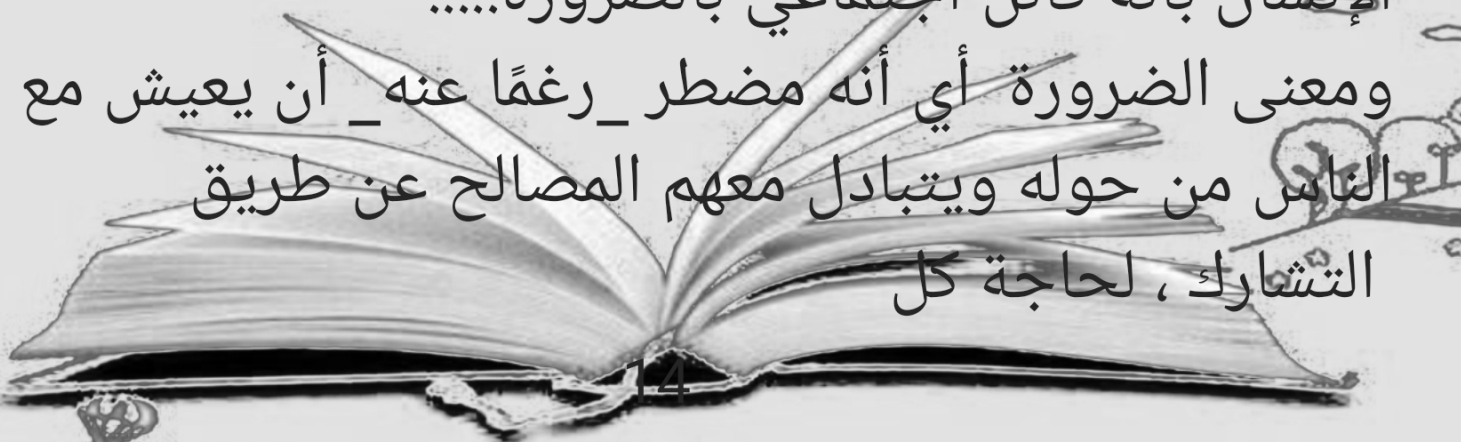 الإنسان بأنه كائن اجتماعي بالضرورة.....
ومعنى الضرورة أي أنه مضطر _رغمًا عنه_ أن يعيش مع
الناس من حوله ويتبادل معهم المصالح عن طريق
التشارك ، لحاجة كل
14